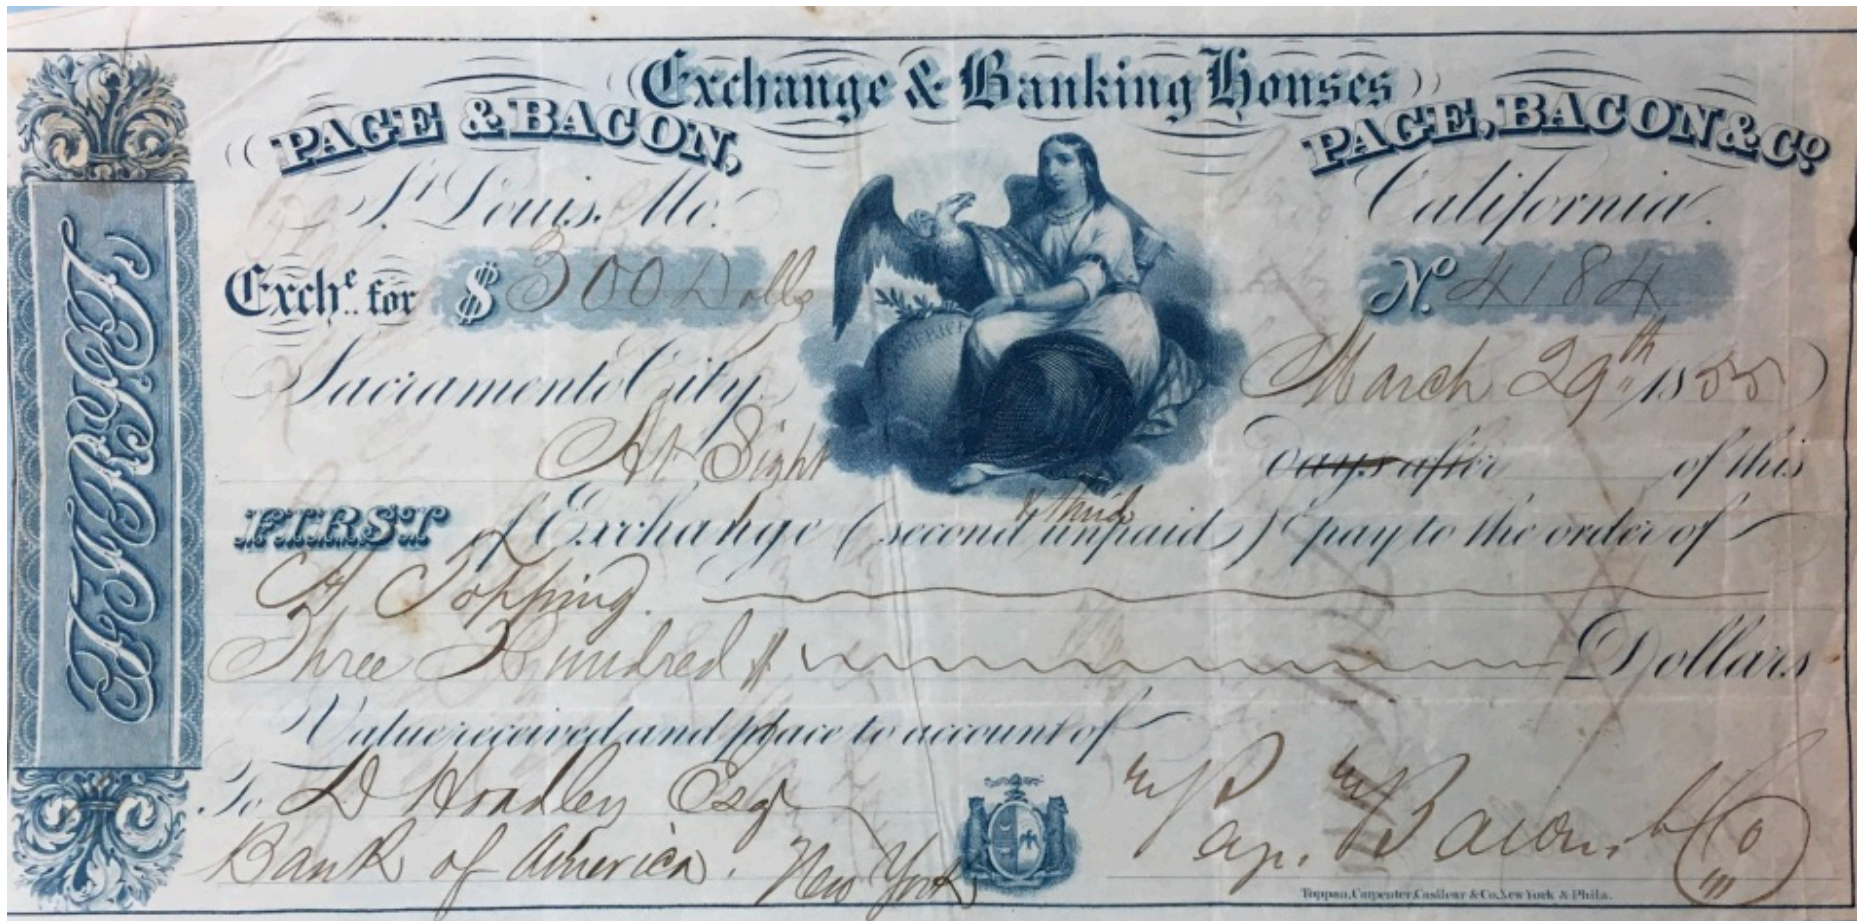 Exchange & Banking Houses
PAGE & BACON,
PAGE, BACON & Co.
St. Louis, Mo.
California.
FIRST
Exche. for $ 300 Dolls
No. 4184
AMERICA
Sacramento City,
March 29th 1855
At Sight
Days after of this
& third
FIRST of Exchange (second unpaid) pay to the order of
Topping.
Three Hundred Dollars
Value received and place to account of
To D Hoadley Esq
Bank of America. New York
Page, Bacon & Co
Toppan, Carpenter, Casilear & Co. New York & Phila.